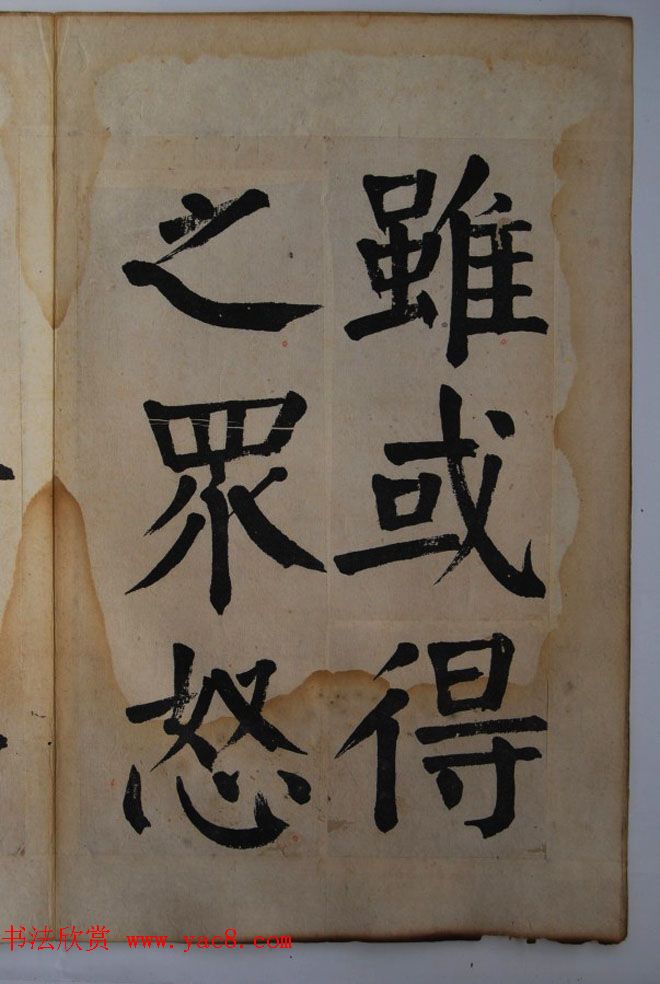 雖或得
之眾怒
书法欣赏 www.yac8.com